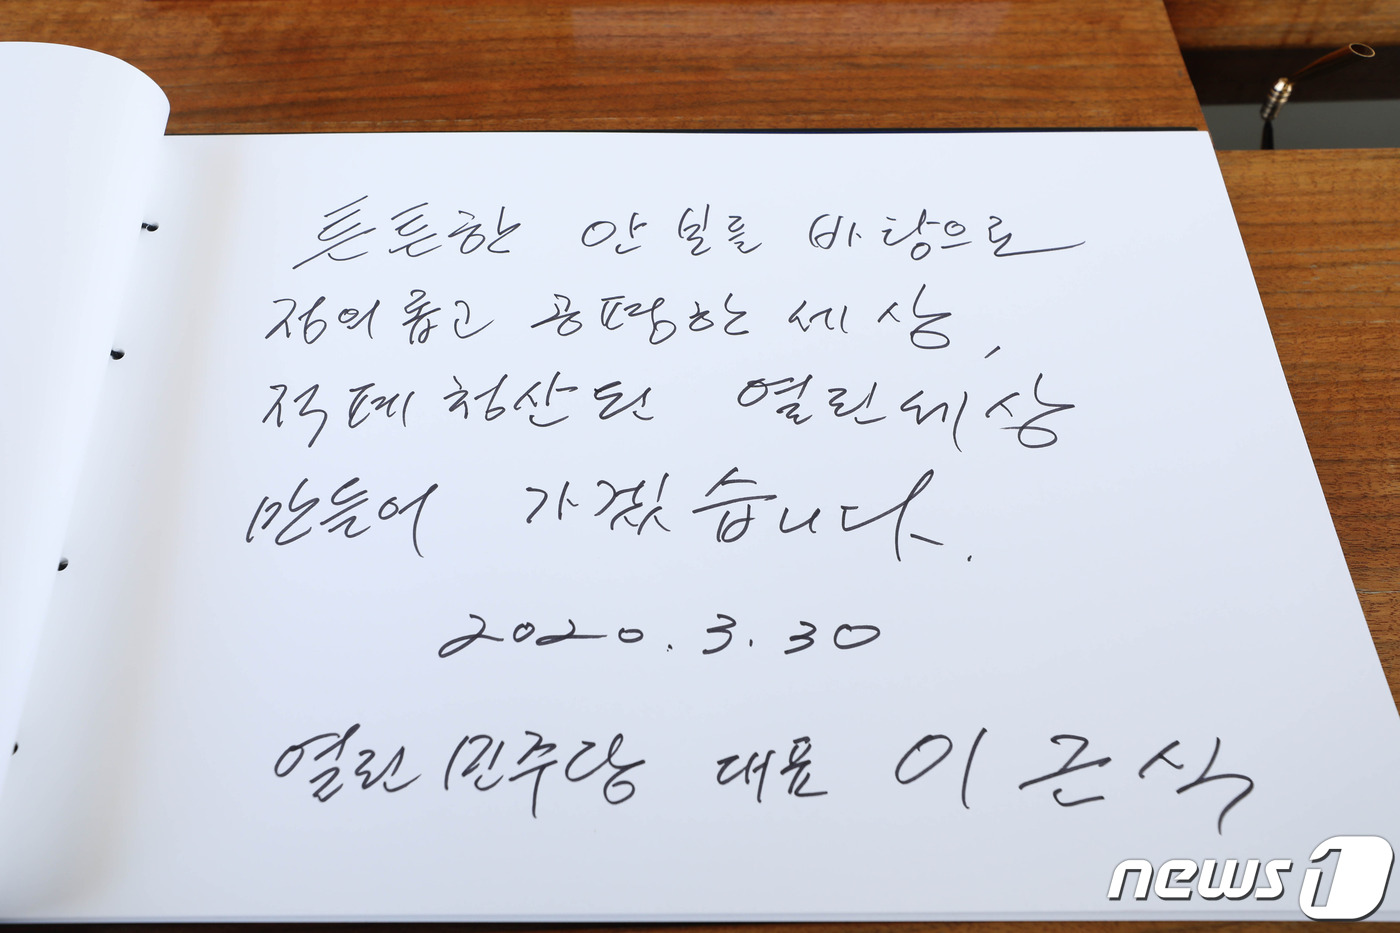 튼튼한 안보를 바탕으로
정의롭고 공평한 세상,
적폐청산된 열린세상
만들어 가겠습니다.
2020. 3. 30
열린민주당 대표 이근식
news1